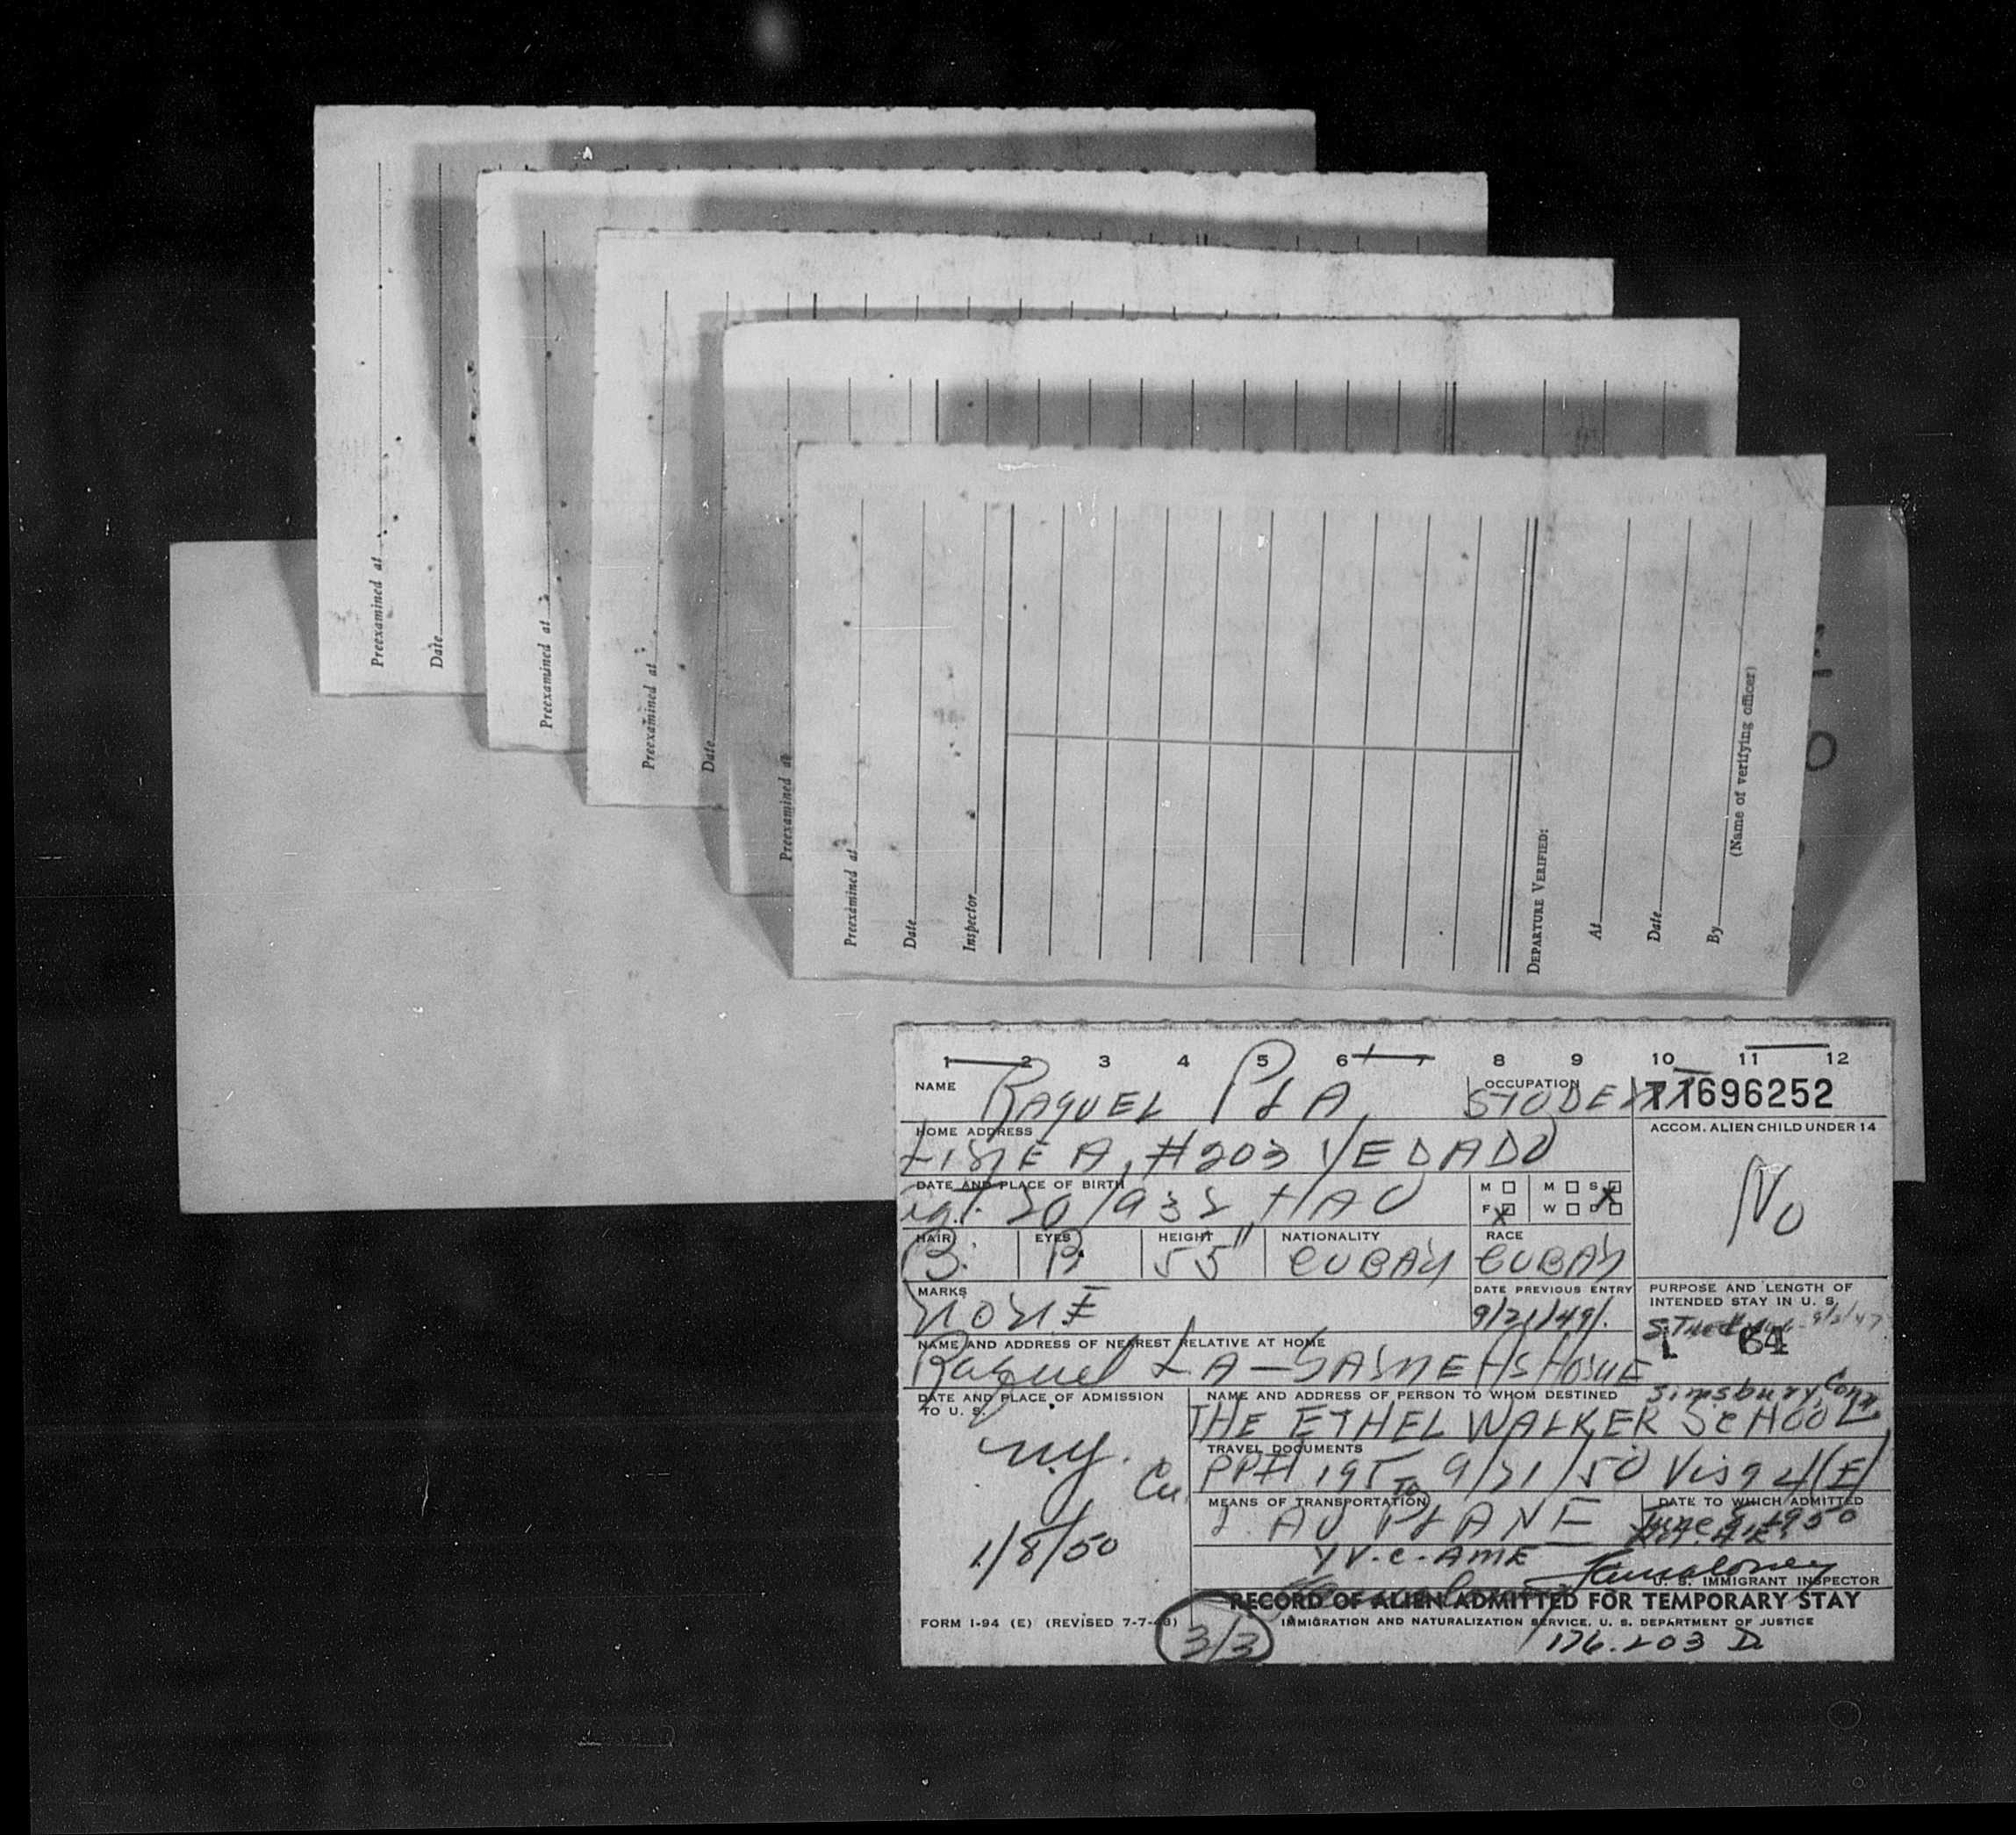 Preexamined at
Date
Preexamined at
Preexamined at
Date
Preexamined at
Preexamined at
Date
Inspector
DEPARTURE VERIFIED:
At
Date
By
(Name of verifying officer)
1 2 3 4 5 6 7 8 9 10 11 12
NAME RAQUEL PLA OCCUPATION STUDENT 696252
HOME ADDRESS ACCOM. ALIEN CHILD UNDER 14
LINEA, #203 VEDADO
No
DATE AND PLACE OF BIRTH M M S
20/932 HAV F X W D X
HAIR EYES HEIGHT NATIONALITY RACE
B. B. 55" CUBAN CUBAN
MARKS DATE PREVIOUS ENTRY PURPOSE AND LENGTH OF
INTENDED STAY IN U. S.
NONE 9/21/49.
64
NAME AND ADDRESS OF NEAREST RELATIVE AT HOME
Raquel
DATE AND PLACE OF ADMISSION TO U. S. NAME AND ADDRESS OF PERSON TO WHOM DESTINED Simsbury, Conn
THE ETHEL WALKER SCHOOL
N.Y.
TRAVEL DOCUMENTS
195 TO 9/21/50 Visa 4(E)
Cu.
MEANS OF TRANSPORTATION DATE TO WHICH ADMITTED
PLANE June 1950
1/8/50
U. S. IMMIGRANT INSPECTOR
RECORD OF ALIEN ADMITTED FOR TEMPORARY STAY
FORM I-94 (E) (REVISED 7-7-48) IMMIGRATION AND NATURALIZATION SERVICE, U. S. DEPARTMENT OF JUSTICE
3/3 176.203 D